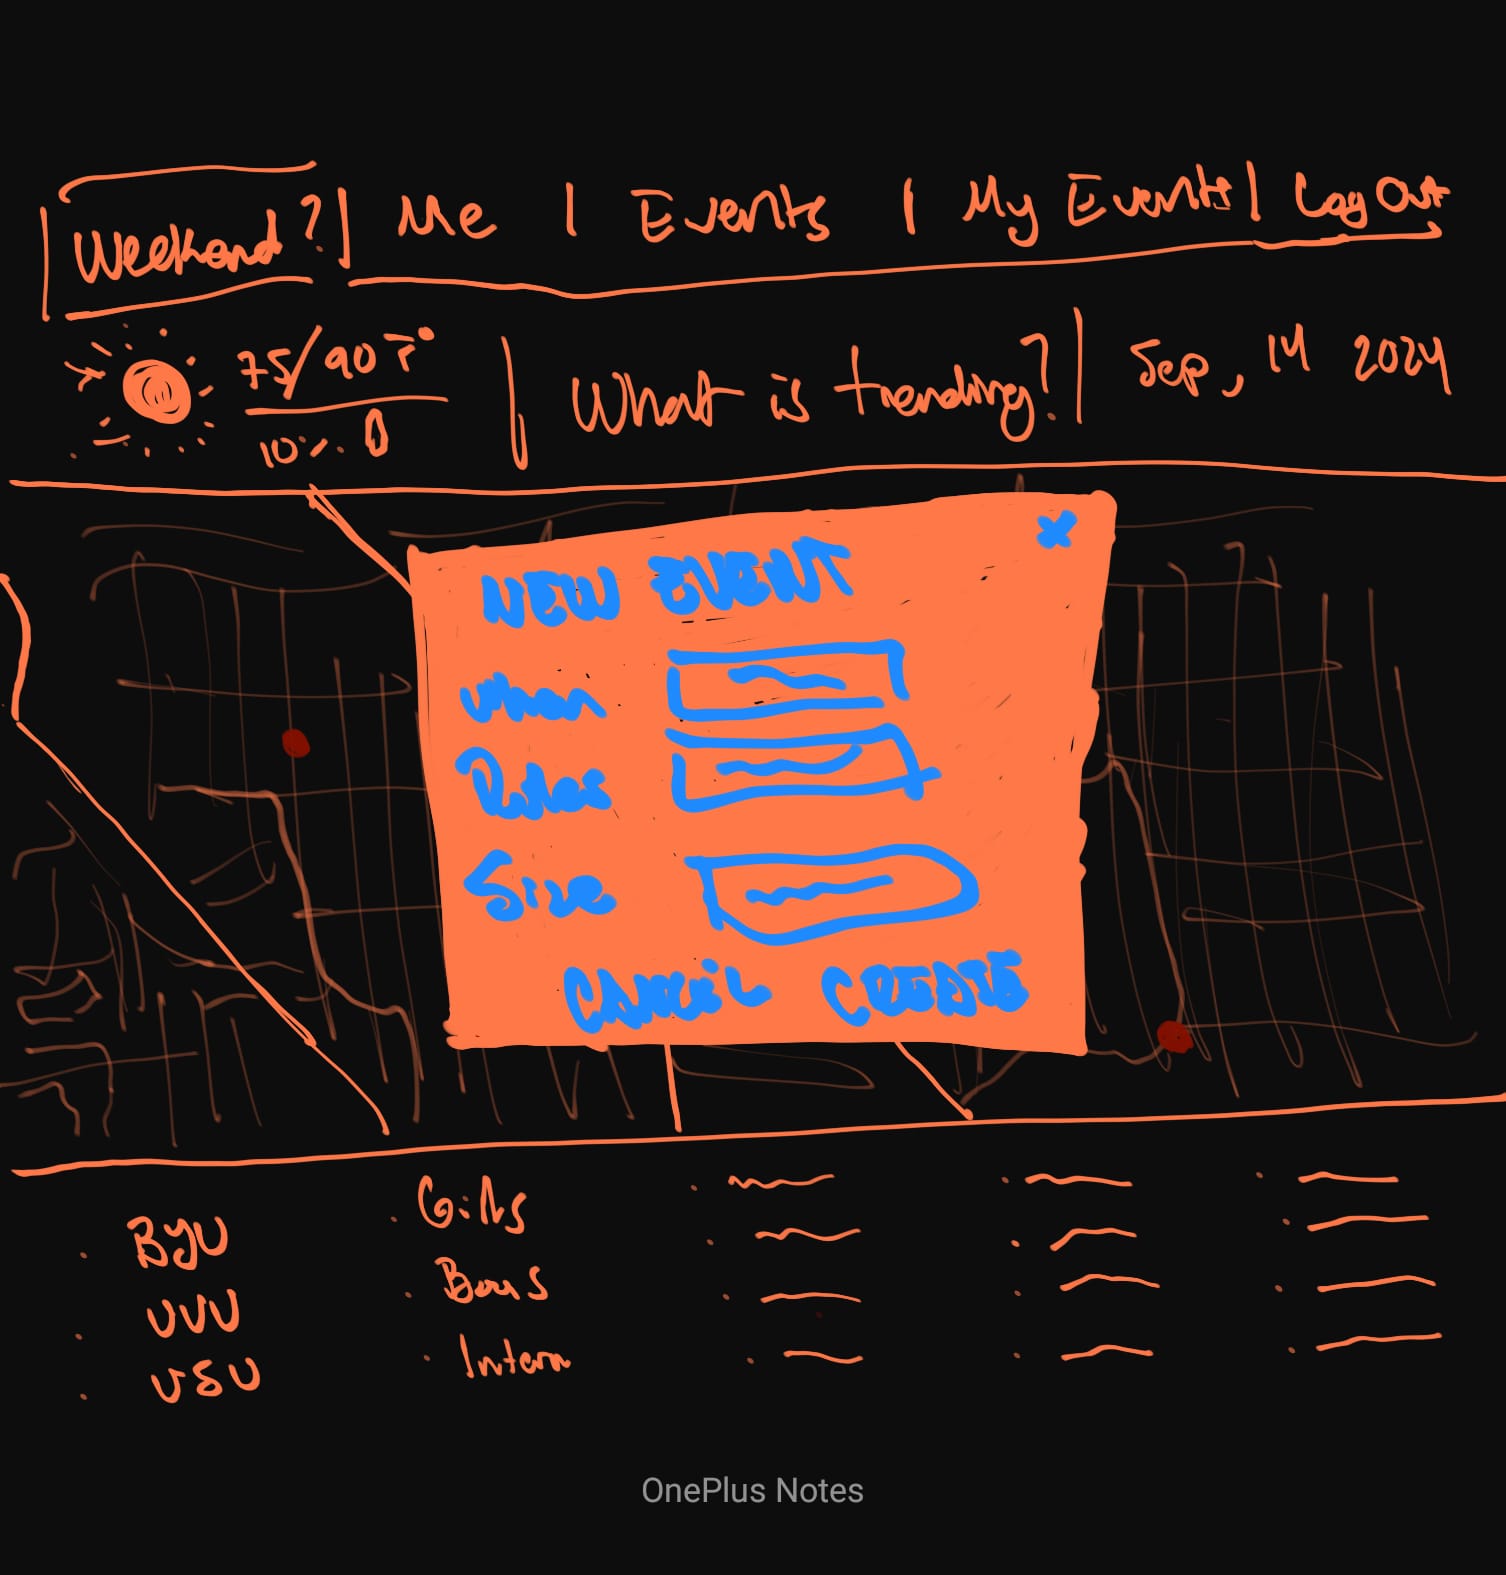 Weekend? | Me | Events | My Events | Log Out
75/90 F° | What is trending? | Sep, 14 2024
10%
NEW EVENT x
When
Rules
Size
CANCEL CREATE
. BYU
. UVU
. USU
. Girls
. Boys
. Intern
OnePlus Notes